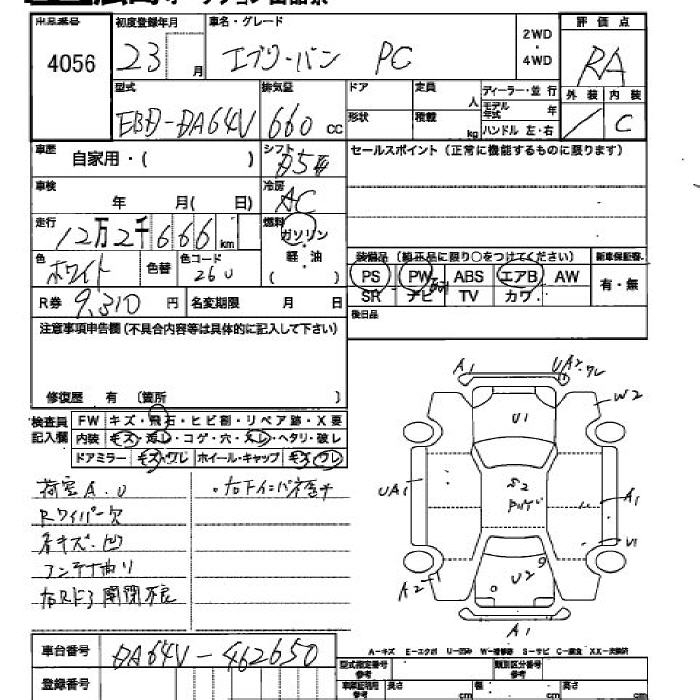 出品番号
4056
初度登録年月
23 月
車名・グレード
エブリーバン PC
2WD
・
4WD
評価点
RA
外装 内装
/ C
型式
EBD-DA64V
排気量
660 cc
ドア
定員
人
形状
積載
kg
ディーラー・並 行
モデル年式 年
ハンドル 左・右
車歴
自家用・( )
シフト
セールスポイント(正常に機能するものに限ります)
車検
年 月( 日)
冷房
AC
走行
12万2千666 km
燃料
ガソリン
・
軽・油
( )
色
ホワイト
色替
色コード
26U
装備品(純正品に限り○をつけてください)
新車保証書
PS PW ABS エアB AW
SR ナビ TV カワ
有・無
R券 9,310 円
名変期限 月 日
後日品
注意事項申告欄(不具合内容等は具体的に記入して下さい)
修復歴 有 (箇所 )
検査員
記入欄
FW キズ・飛石・ヒビ割・リペア跡・X要
内装 キズ・汚レ・コゲ・穴・スレ・ヘタリ・破レ
ドアミラー キズ・ワレ ホイール・キャップ キズ・ワレ
荷室A.U
Rワイパー欠
若キズ・凹
アンテナ曲り
右Rドア開閉不良
A1
W2
U1
UA1
S2
A1
U1
A2
U2
A1
A-キズ E-エクボ U-凹み W-補修跡 S-サビ C-腐食 XX-交換済
車台番号
DA64V-462650
登録番号
型式指定番号
参考
類別区分番号
参考
長さ cm 幅 cm 高さ cm